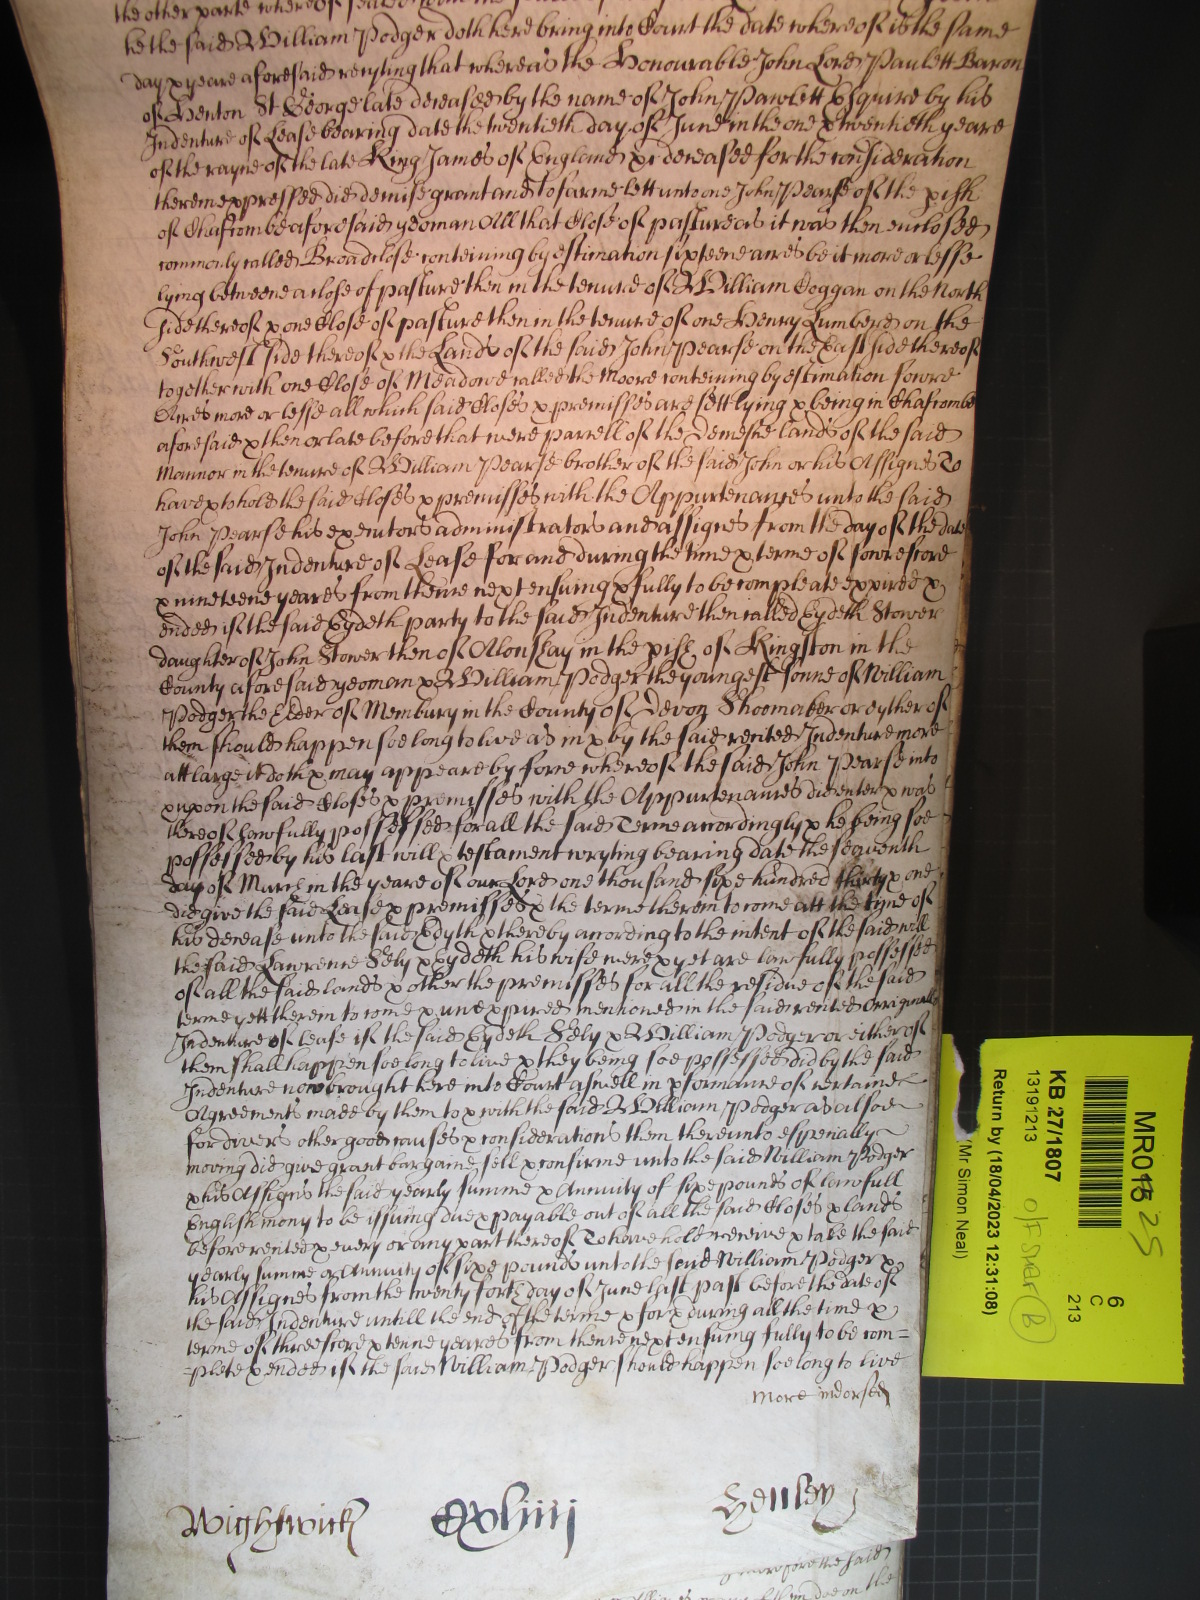 the other parte whereof sealed with the
he the said William Podger doth here bring into Court the date whereof is the same
day & yeare aforesaid recyting that whereas the Honourable John Lord Paulett Baron
of Henton St George late deceased by the name of John Pawlett Esquire by his
Indenture of Lease bearing date the twentieth day of June in the one & twentieth yeare
of the raigne of the late King James of England &c deceased for the consideration
therein expressed did demise grant and to farme lett unto one John Pearse of the pish
of Chafcombe aforesaid yeoman All that Close of pasture as it was then enclosed
commonly called Broadclose conteining by estimation sixteene acres be it more or lesse
lying betweene a close of pasture then in the tenure of William Coggan on the North
side thereof & one Close of pasture then in the tenure of one Henry Lumberd on the
Southwest side thereof & the Lands of the said John Pearse on the East side thereof
together with one Close of Meadowe called the Moore conteining by estimation fowre
Acres more or lesse all which said Closes & premisses are sett lying & being in Chafcombe
aforesaid & then or late before that were parcell of the Demesne lands of the said
Mannor in the tenure of William Pearse brother of the said John or his Assignes To
have & to hold the said Closes & premisses with the Appurtenances unto the said
John Pearse his executors administrators and assignes from the day of the date
of the said Indenture of Lease for and during the time & terme of fowrescore
& nineteene yeares from thence next ensuing & fully to be compleate expired &
ended if the said Eydeth party to the said Indenture then called Eydeth Stower
daughter of John Stower then of Alonshay in the pish of Kingston in the
County aforesaid yeoman & William Podger the youngest sonne of William
Podger the Elder of Membury in the County of Devon Shoemaker or eyther of
them should happen soe long to live as in & by the said recited Indenture more
att large it doth & may appeare by force whereof the said John Pearse into
& upon the said Closes & premisses with the Appurtenances did enter & was
thereof lawfully possessed for all the said Terme accordingly & he being soe
possessed by his last will & testament wryting bearing date the seaventh
day of March in the yeare of our Lord one thousand sixe hundred thirty & one
did give the said Lease & premisses & the terme therein to come att the tyme of
his decease unto the said Edyth & thereby according to the intent of the said will
the said Lawrence Sely & Eydeth his wife were & yet are lawfully possessed
of all the said lands & other the premisses for all the residue of the said
terme yett therein to come & unexpired mentioned in the said recited Originall
Indenture of lease if the said Eydeth Sely & William Podger or either of
them shall happen soe long to live & they being soe possessed did by the said
Indenture now brought here into Court aswell in pformance of certaine
Agreements made by them to & with the said William Podger as alsoe
for divers other good causes & considerations them thereunto especially
moving did give grant bargaine sell & confirme unto the said William Podger
& his Assignes the said yearly summe & Annuity of sixe pounds of lawfull
English mony to be issuing due & payable out of all the said Closes & lands
before recited & every or any part thereof To have hold receive & take the said
yearly summe or Annuity of sixe pounds unto the said William Podger &
his Assignes from the twenty forth day of June last past before the date of
the said Indenture untill the end of the terme & for & during all the time &
terme of threescore & tenne yeares from thence next ensuing fully to be com=
=plete & ended if the said William Podger should happen soe long to live
More indorsed
Wightwick Cxliiij Henley
wherefore the said
on the
MR018 25
6
C
213
KB 27/1807
13191213
Return by (18/04/2023 12:31:08)
(Mr Simon Neal)
B